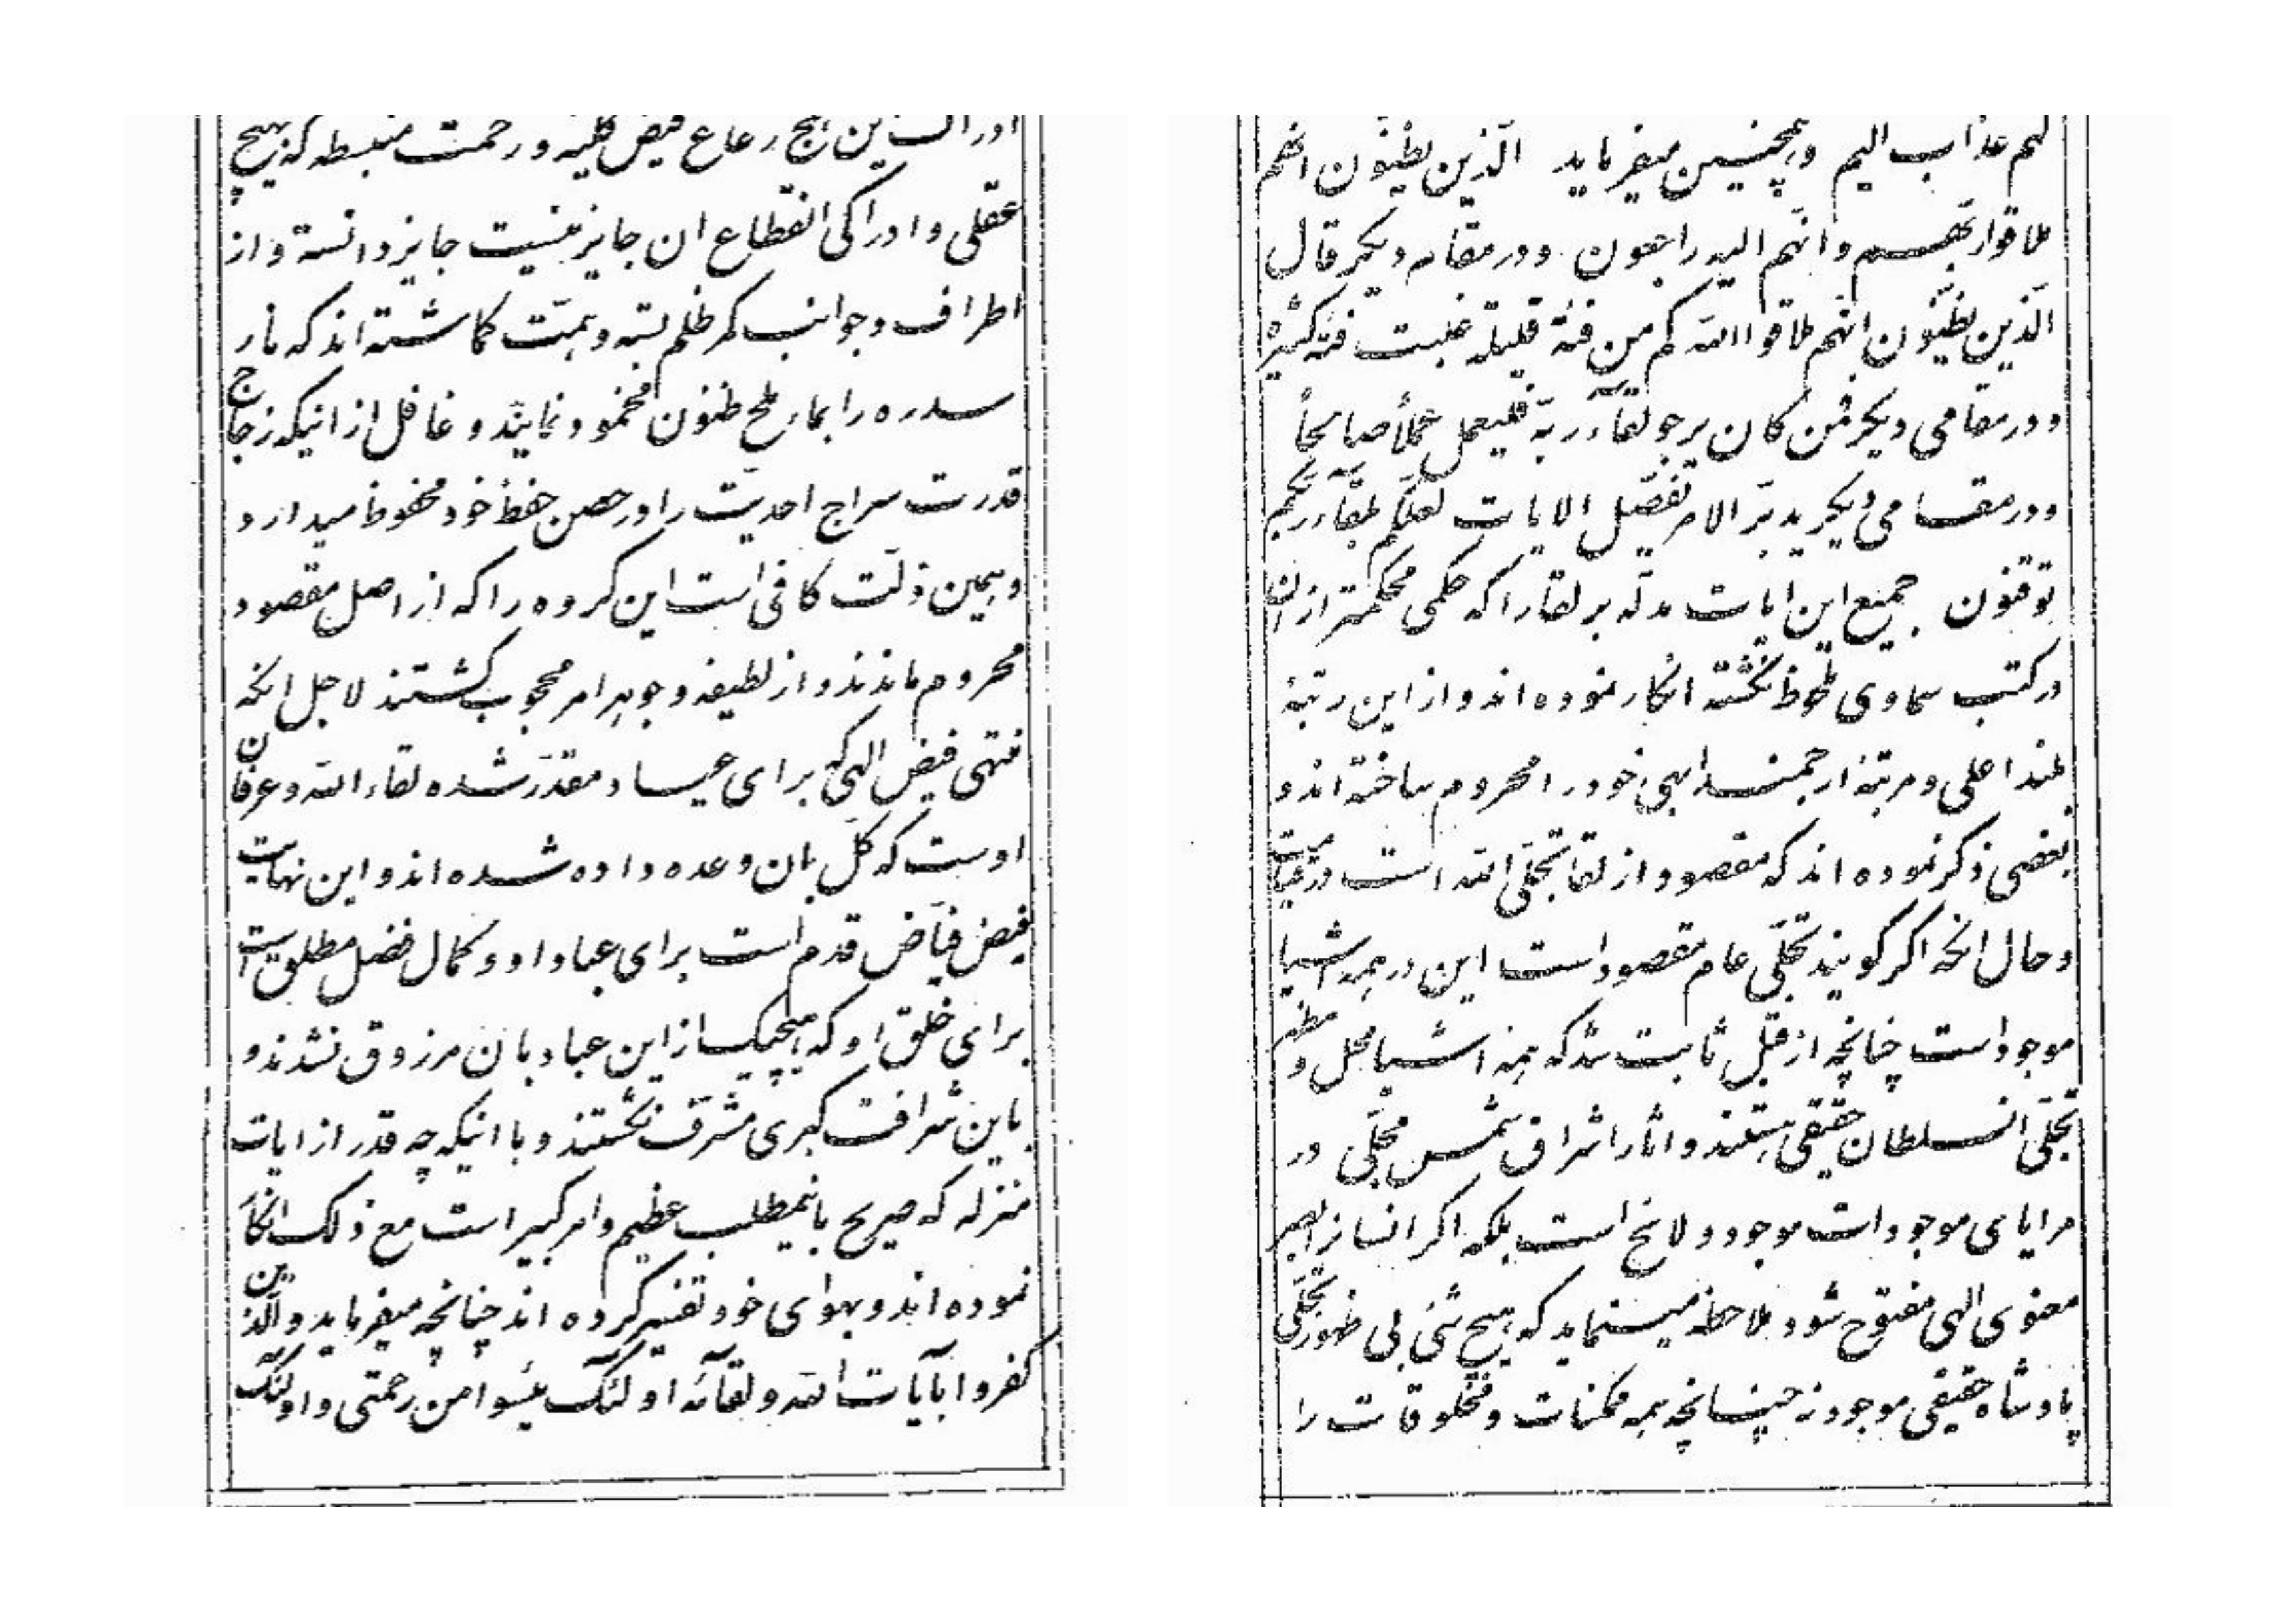 ادراک این همج رعاع فیض کلیه و رحمت منبسطه که بهیچ
عقلی و ادراکی انقطاع ان جایز نیست جایز دانسته و از
اطراف و جوانب کمر ظلم بسته و همّت کماشته اند که نار
سدره را بماء ملح ظنون مخمود نمایند و غافل از اینکه زجاج
قدرت سراج احدیّت را در حصن حفظ خود محفوظ میدارد و
و همین ذلّت کافی است این کروه را که از اصل مقصود
محروم ماندند و از لطیفه و جوهر امر محجوب کشتند لاجل انکه
منتهی فیض الهی که برای عباد مقدّر شده لقاء الله و عرفان
اوست که کلّ بان وعده داده شده اند و این نهایت
فیض فیّاض قدم است برای عباد او و کمال فضل مطلق است
برای خلق او که هیچیک از این عباد بان مرزوق نشدند و
باین شرافت کبری مشرّف نکشتند و با اینکه چه قدر از ایات
منزله که صریح بانیمطلب عظیم و امر کبیر است مع ذلک انکار
نموده اند و بهوای خود تفسیر کرده اند چنانچه میفرماید و الّذین
کفروا بآیات الله و لقآئه اولئک یئسوا من رحمتی و اولئک
لهم عذاب الیم و همچنین میفرماید الّذین یظنّون انّهم
ملاقوا ربّهم و انّهم الیه راجعون و در مقام دیکر قال
الّذین یظنّون انّهم ملاقوا الله کم من فئة قلیلة غلبت فئة کثیرة
و در مقامی دیکر فمن کان یرجو لقآء ربّه فلیعمل عملاً صالحاً
و در مقامی دیکر یدبّر الامر یفصّل الایات لعلّکم بلقآء ربّکم
توقنون جمیع این ایات مدلّه بر لقا را که حکمی محکمتر از ان
در کتب سماوی ملحوظ نکشته انکار نموده اند و از این رتبهٴ
بلند اعلی و مرتبهٴ ارجمند ابهی خود را محروم ساخته اند و
بعضی ذکر نموده اند که مقصود از لقا تجلّی الله است در قیامت
و حال انکه اکر کویند تجلّی عام مقصود است این در همه اشیا
موجود است چنانچه از قبل ثابت شد که همه اشیا محل و مظهر
تجلّی ان سلطان حقیقی هستند و اثار اشراق شمس مجلّی در
مرایای موجودات موجود و لائح است بلکه اکر انسانرا بصر
معنوی الهی مفتوح شود ملاحظه مینماید که هیچ شئی بی ظهور تجلّی
پادشاه حقیقی موجود نه چنانچه همه ممکنات و مخلوقات را